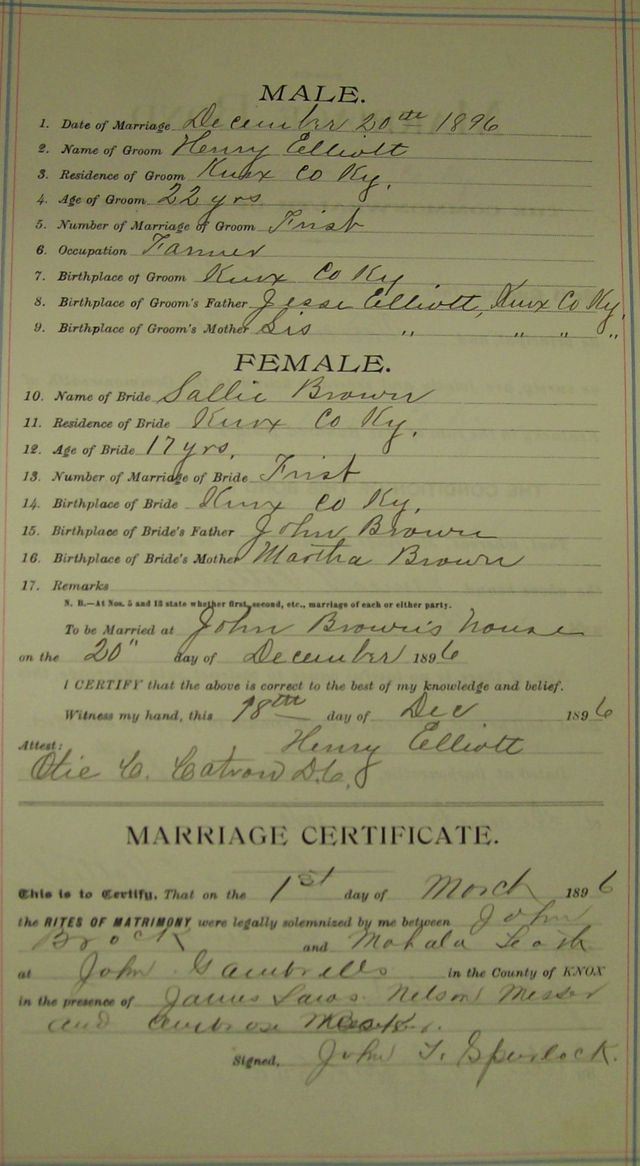 MALE.
1. Date of Marriage December 20th 1896
2. Name of Groom Henry Elliott
3. Residence of Groom Knox Co Ky.
4. Age of Groom 22 yrs
5. Number of Marriage of Groom Frist
6. Occupation Farmer
7. Birthplace of Groom Knox Co Ky
8. Birthplace of Groom's Father Jesse Elliott, Knox Co Ky,
9. Birthplace of Groom's Mother Sis " " " "
FEMALE.
10. Name of Bride Sallie Brown
11. Residence of Bride Knox Co Ky,
12. Age of Bride 17 yrs,
13. Number of Marriage of Bride Frist
14. Birthplace of Bride Knox Co Ky,
15. Birthplace of Bride's Father John Brown
16. Birthplace of Bride's Mother Martha Brown
17. Remarks
N. B.—At Nos. 5 and 13 state whether first, second, etc., marriage of each or either party.
To be Married at John Brown's house
on the 20" day of December 1896
I CERTIFY that the above is correct to the best of my knowledge and belief.
Witness my hand, this 18th day of Dec 1896
Henry Elliott
Attest:
Otie C. Catron D.C.
MARRIAGE CERTIFICATE.
This is to Certify, That on the 1st day of March 1896
the RITES OF MATRIMONY were legally solemnized by me between John
Brock and Mahala
at John Gambrells in the County of KNOX
in the presence of James Laws Nelson Messer
and Ambrose
Signed, John T. Spurlock.